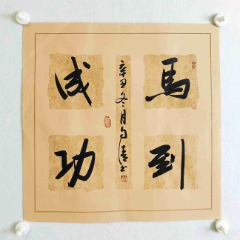 馬到
成功
辛丑冬月